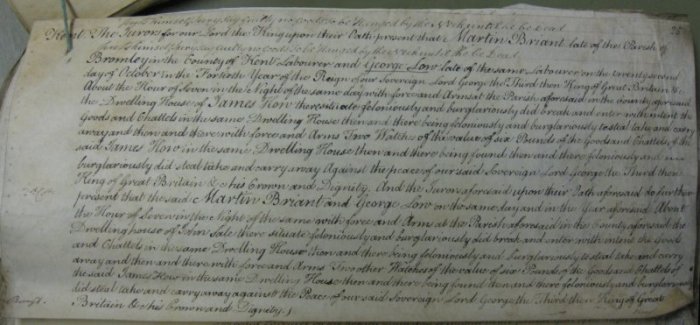 puts himself Jury say Guilty no Goods To be Hanged by the Neck until he be Dead
Kent The Jurors for our Lord the King upon their Oath present that Martin Briant late of the Parish of
puts himself Jury say Guilty no Goods To be Hanged by the Neck until he be Dead
Bromley in the County of Kent Labourer and George Low late of the same Labourer on the twenty second
day of October in the Fortieth Year of the Reign of our Sovereign Lord George the Third then King of Great Britain &c.
About the Hour of Seven in the Night of the same day with force and Arms at the Parish aforesaid in the County aforesaid
the Dwelling House of James How there situate feloniously and burglariously did break and enter with intent the
Goods and Chattels in the same Dwelling House then and there being feloniously and burglariously to steal take and carry
away and then and there with force and Arms Two Watches of the value of six Pounds of the Goods and Chattels of the
said James How in the same Dwelling House then and there being found then and there feloniously and
burglariously did steal take and carry away Against the peace of our said Sovereign Lord George the Third then
King of Great Britain &c his Crown and Dignity. And the Jurors aforesaid upon their Oath aforesaid do further
present that the said Martin Briant and George Low on the same day and in the Year aforesaid About
the Hour of Seven in the Night of the same with force and Arms at the Parish aforesaid in the County aforesaid the
Dwelling house of John Sale there situate feloniously and burglariously did break and enter with intent the Goods
and Chattels in the same Dwelling House then and there being feloniously and burglariously to steal take and carry
away and then and there with force and Arms Two other Watches of the value of six Pounds of the Goods and Chattels of
the said James How in the same Dwelling House then and there being found then and there feloniously and burglariously
did steal take and carry away against the Peace of our said Sovereign Lord George the Third then King of Great
Britain &c his Crown and Dignity.